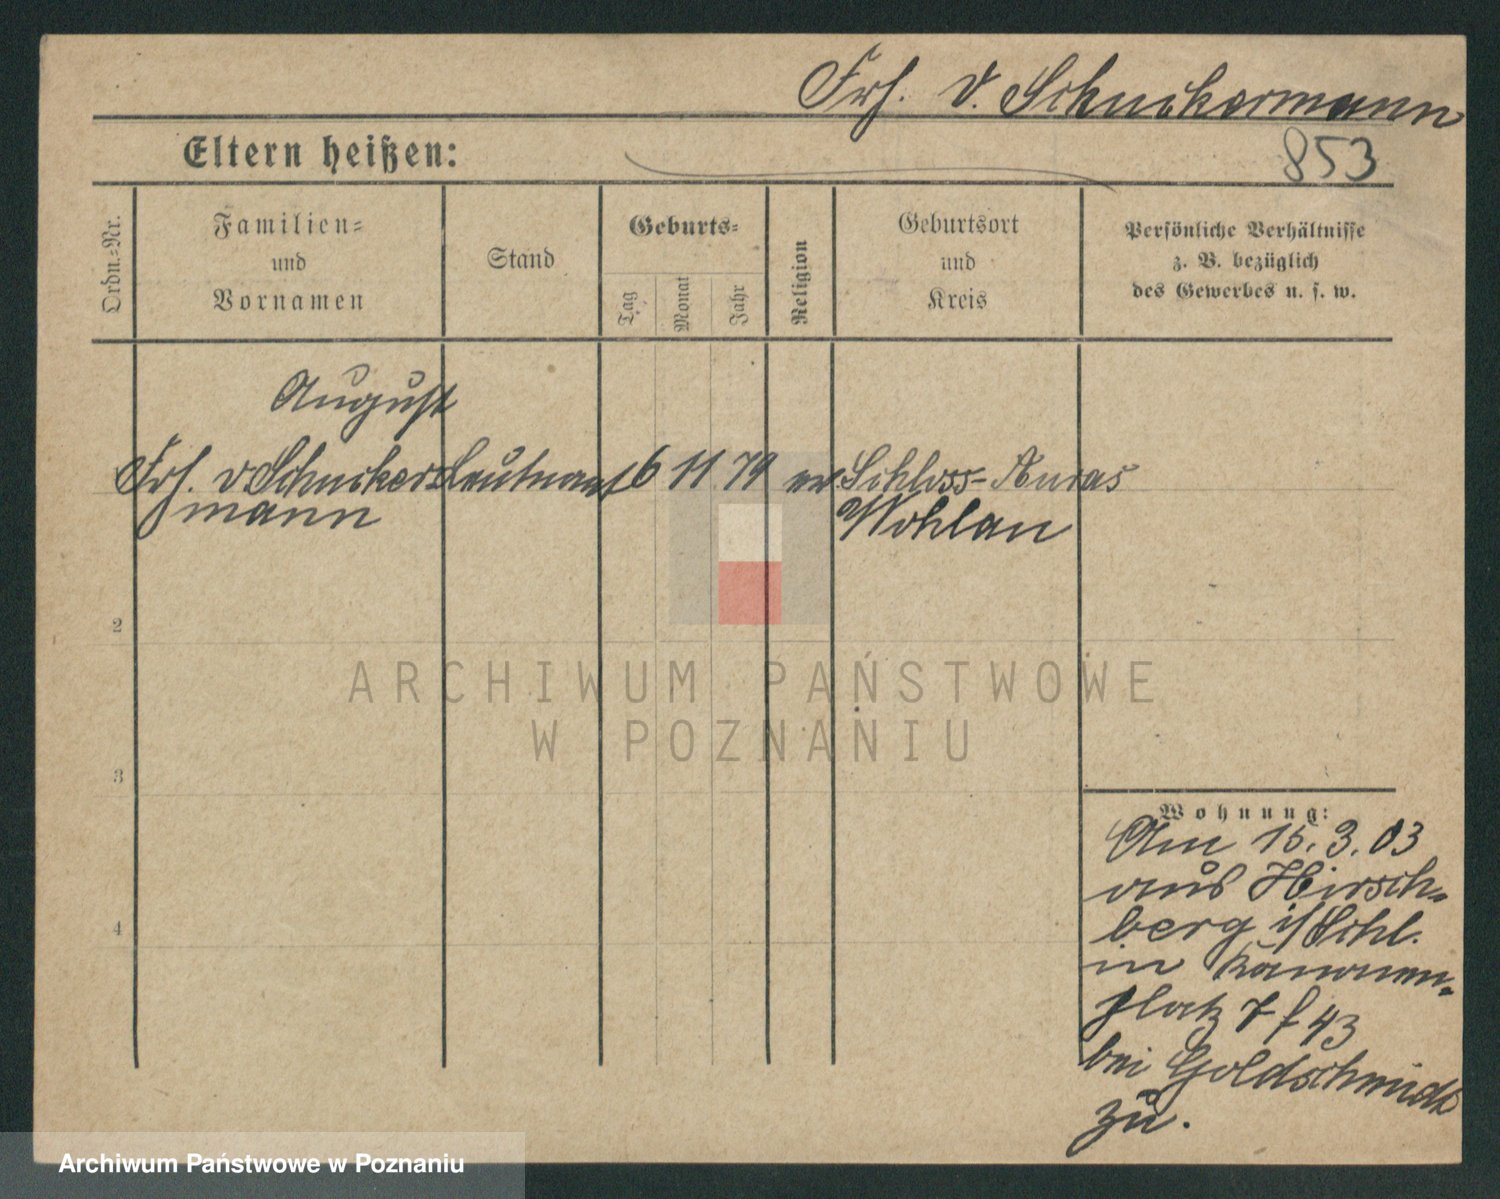 Frh. v. Schuckermann
853
Eltern heißen:
Ordn.=Nr.
Familien=
und
Vornamen
Stand
Geburts=
Tag
Monat
Jahr
Religion
Geburtsort
und
Kreis
Persönliche Verhältnisse
z. B. bezüglich
des Gewerbes u. s. w.
August
Frh. v Schucker= Leutnant 6 11 79 ev. Schloss-Auras
mann Wohlau
2
3
4
Wohnung:
Am 15.3.03
aus Hirsch=
berg i/Schl.
in Kanonen=
platz 7 f 43
bei Goldschmidt
zu.
ARCHIWUM PAŃSTWOWE
W POZNANIU
Archiwum Państwowe w Poznaniu